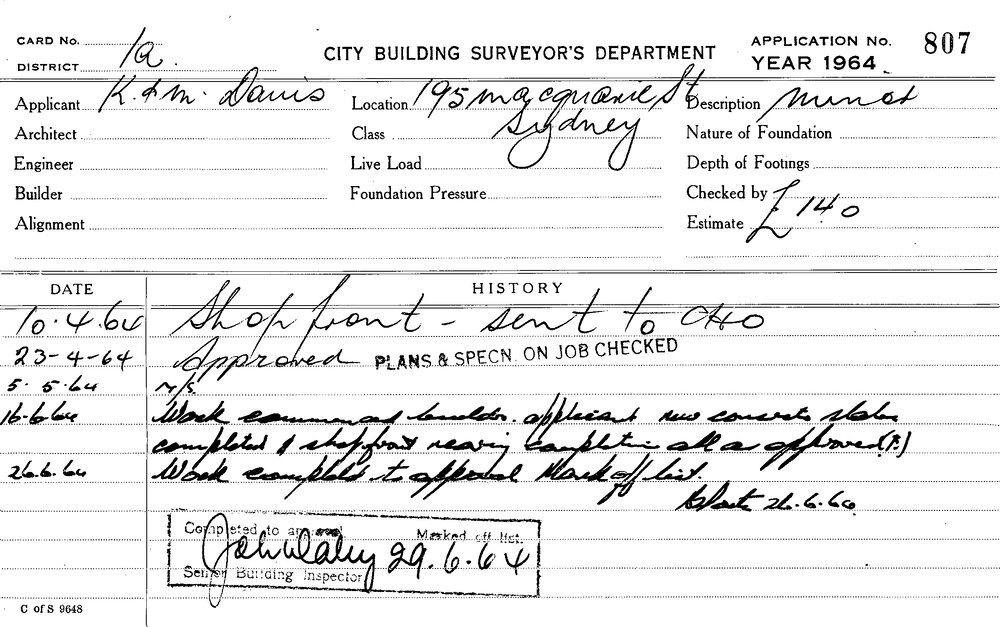 CARD No.
DISTRICT 1a.
CITY BUILDING SURVEYOR'S DEPARTMENT
APPLICATION No. 807
YEAR 1964
Applicant K. & M. Davis
Location 195 Macquarie St
Sydney
Description Minor
Architect
Class
Nature of Foundation
Engineer
Live Load
Depth of Footings
Builder
Foundation Pressure
Checked by
Alignment
Estimate £140
DATE HISTORY
10.4.64 Shop front - sent to CHO
23-4-64 Approved PLANS & SPECN. ON JOB CHECKED
5.5.64 N/S.
16.6.64 Work commenced builder. applicant new concrete slab
completed & shopfront nearing completion all as approved (P.)
26.6.64 Work completed to approval Mark off list.
26.6.64
Completed to approval Marked off list.
29.6.64
Senior Building Inspector
C of S 9648